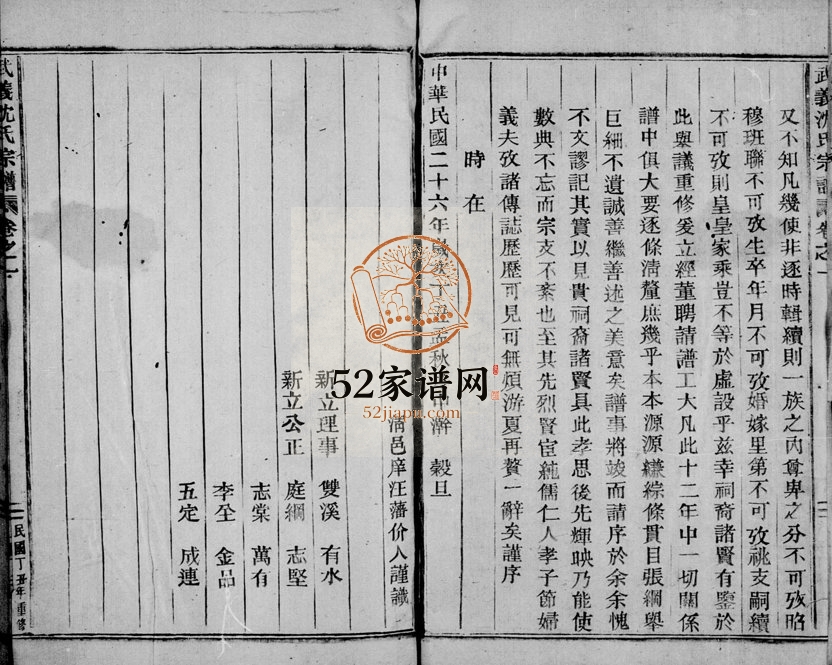 武義沈氏宗譜 卷之一
又不知凡幾使非逐時輯續則一族之內尊卑之分不可攷昭
穆班聯不可攷生卒年月不可攷婚嫁里第不可攷祧支嗣續
不可攷則皇皇家乘豈不等於虛設乎兹幸祠裔諸賢有鑒於
此與議重修爰立經董聘請譜工大凡此十二年中一切關係
譜中俱大要逐條清釐庶幾乎本本源源縷綜條貫目張綱舉
巨細不遺誠善繼善述之美意矣譜事將竣而請序於余余愧
不文謬記其實以見貴祠裔諸賢具此孝思後先輝映乃能使
數典不忘而宗支不紊也至其先烈賢宦純儒仁人孝子節婦
義夫攷諸傳誌歷歷可見可無煩游夏再贅一辭矣謹序
時在
中華民國二十六年歲次丁丑孟秋月中澣 穀旦
清邑庠汪藩价人謹識
新立理事 雙溪 有水
新立公正 庭綱 志堅
志棠 萬有
李全 金品
五定 成連
武義沈氏宗譜 卷之一
民國丁丑年重修
52家谱网
52jiapu.com